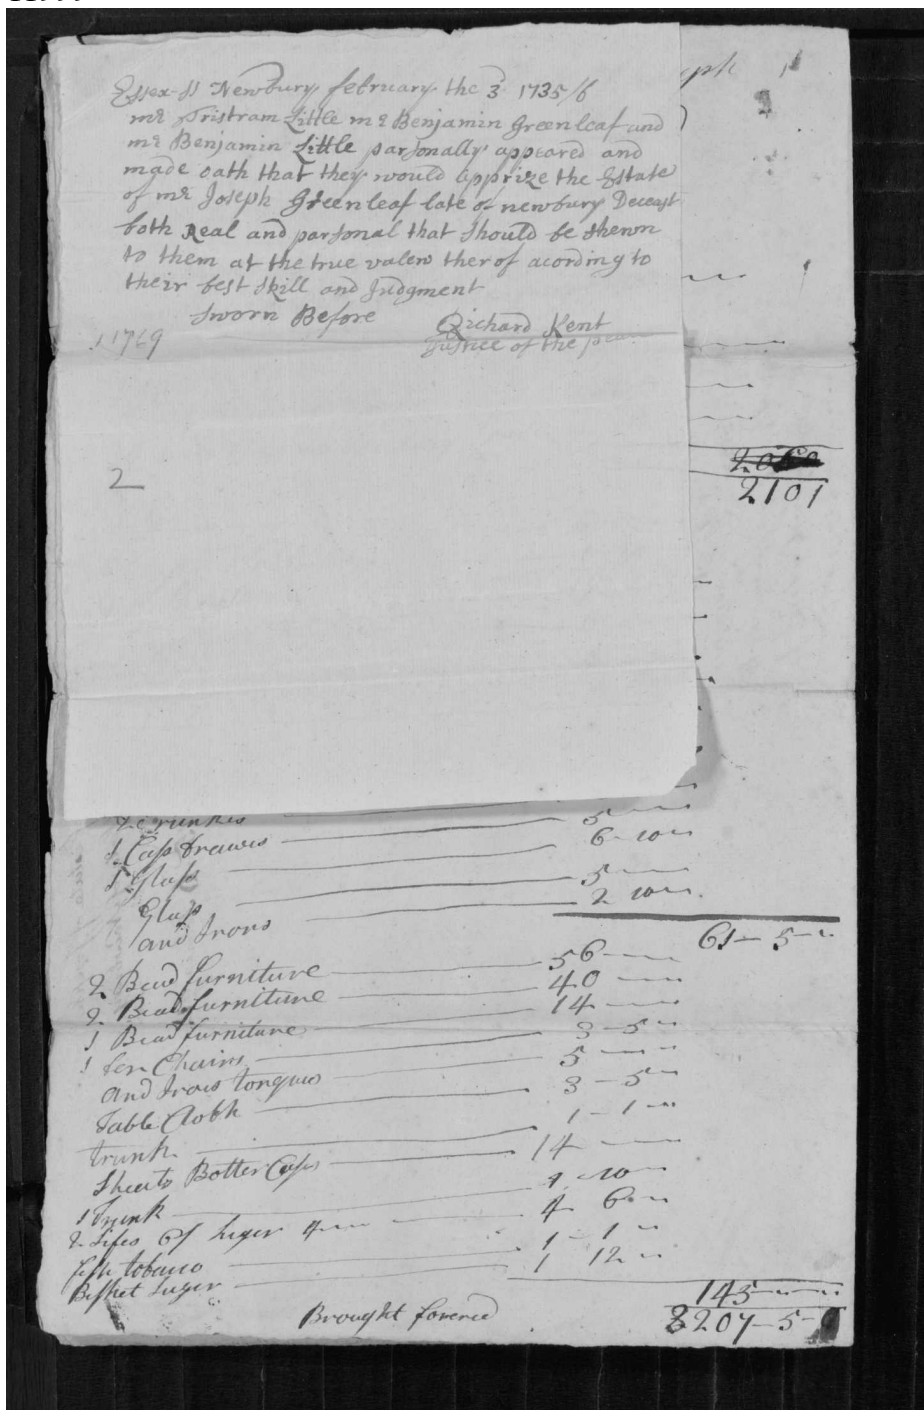 Essex ss Newbury february the 3 1735/6
mr Tristram Little mr Benjamin Greenleaf and
mr Benjamin Little parsonally appeared and
made oath that they would apprize the Estate
of mr Joseph Greenleaf late of newbury Deceast
both Real and parsonal that should be shewn
to them at the true valew therof acording to
their best skill and Judgment
sworn Before Richard Kent
Justice of the
11769
2
2101
5
1 Cass Drawes 6 - 10
1 Glass
Glass 5
and Irons 2 10
61 - 5
2 Bead furniture 56
2 Bead furniture 40
1 Bead furniture 14
Chairs 3 - 5
and Irons tongues 5
Table Cloth 3 - 5
trunk 1 - 1
Sheets Botter Cass 14
1 Trunk 10
of Suger 4 6
tobacco 1 - 1
Suger 1 12
145
Brought forered
2207 - 5